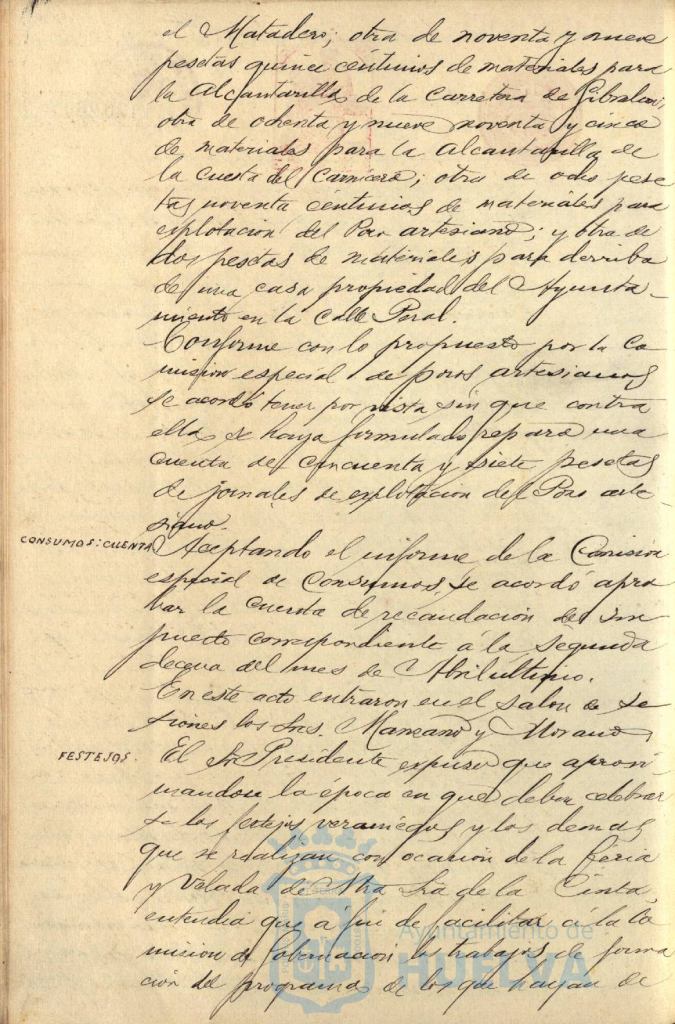 el Matadero; otra de noventa y nueve
pesetas quince céntimos de materiales para
la Alcantarilla de la Carretera de Gibraleon;
otra de ochenta y nueve noventa y cinco
de materiales para la Alcantarilla de
la Cuesta del Carnicero; otra de ocho pese
tas noventa céntimos de materiales para
esplotacion del Pozo artesiano; y otra de
dos pesetas de materiales para derribo
de una casa propiedad del Ayunta-
miento en la Calle Peral.
Conforme con lo propuesto por la Co
mision especial de pozos artesianos
se acordó tener por vista, sin que contra
ella se haya formulado reparo una
cuenta de cincuenta y siete pesetas
de jornales de esplotacion del Pozo arte
siano.
CONSUMOS: CUENTA
Aceptando el informe de la Comision
especial de Consumos, se acordó apro
bar la cuenta de recaudacion del im
puesto correspondiente á la segunda
decena del mes de Abril ultimo.
En este acto entraron en el salon de se
siones los Sres. Manzano y Morano.
FESTEJOS.
El Sr Presidente expuso que aproxi
mandose la época en que deben celebrar
se los festejos veraniegos y los demas
que se realizan con ocasion de la feria
y Velada de Ntra Sra de la Cinta,
entendia que á fin de facilitar á la Co
mision de Gobernacion los trabajos de forma
cion del programa de los que hayan de
Ayuntamiento de
HUELVA